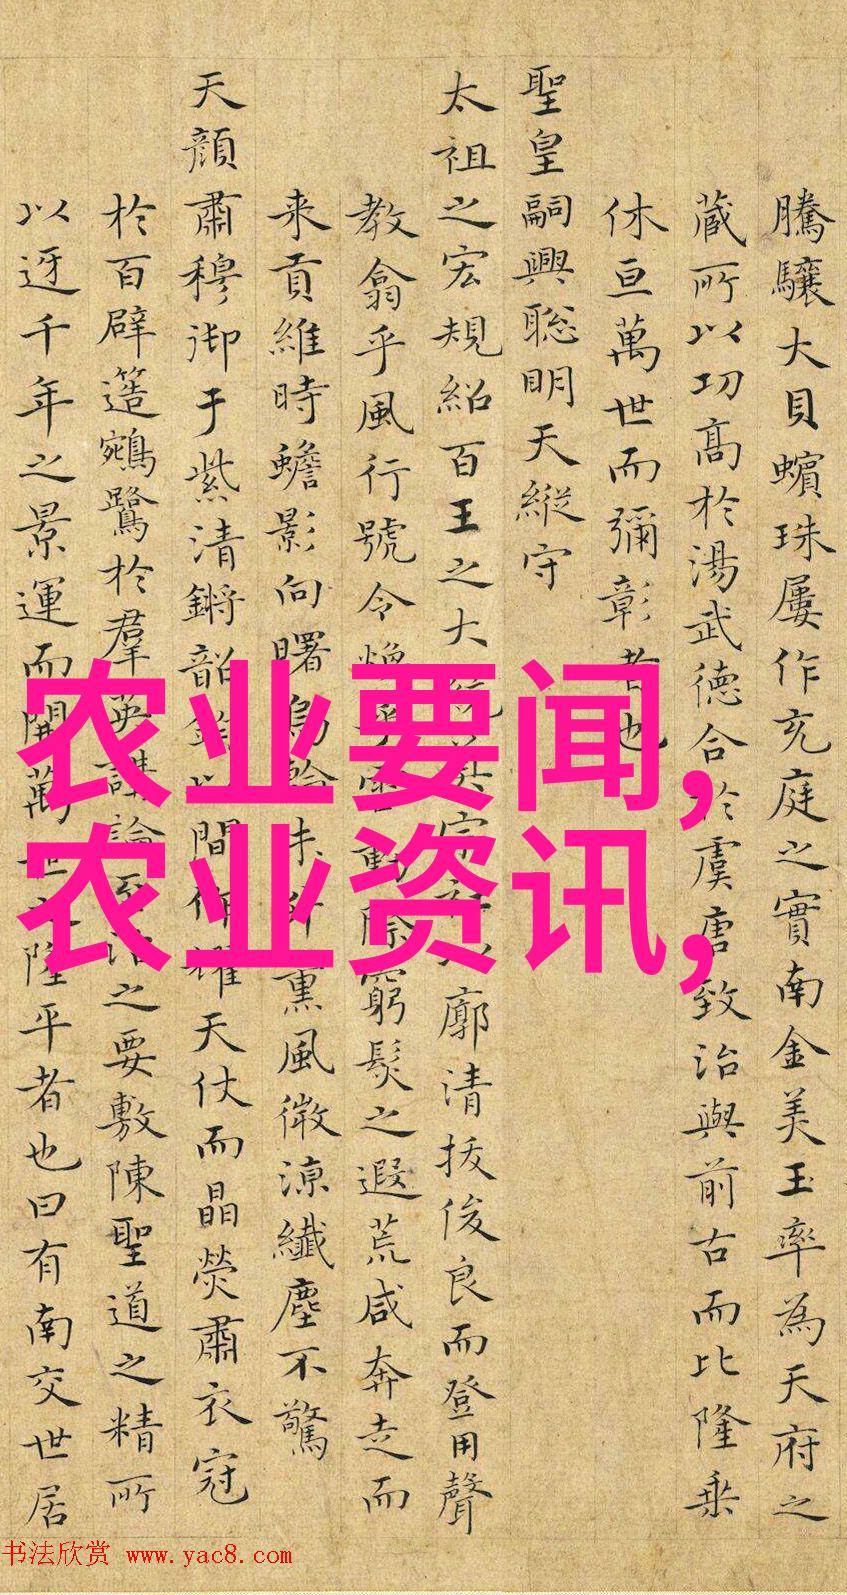 騰驤大貝蠙珠屢作充庭之實南金美玉率為天府之
蔵所以功高於湯武德合於虞唐致治與前古而比隆乗
休亘萬世而彌彰者也
聖皇嗣興聡明天縱守
太祖之宏規紹百王之大廓清抜俊良而登用聲
教翕乎風行號令除窮髮之遐荒咸奔走而
来貢維時蟾影向曙烏熏風微涼纖塵不驚
天顔肅穆御于紫清鏘韶間作耀天仗而晶熒肅衣冠
於百辟簉鵷鷺於羣英講論至治之要敷陳聖道之精所
以迓千年之景運而開萬世隆平者也曰有南交世居
农业要闻,
农业资讯,
书法欣赏 www.yac8.com